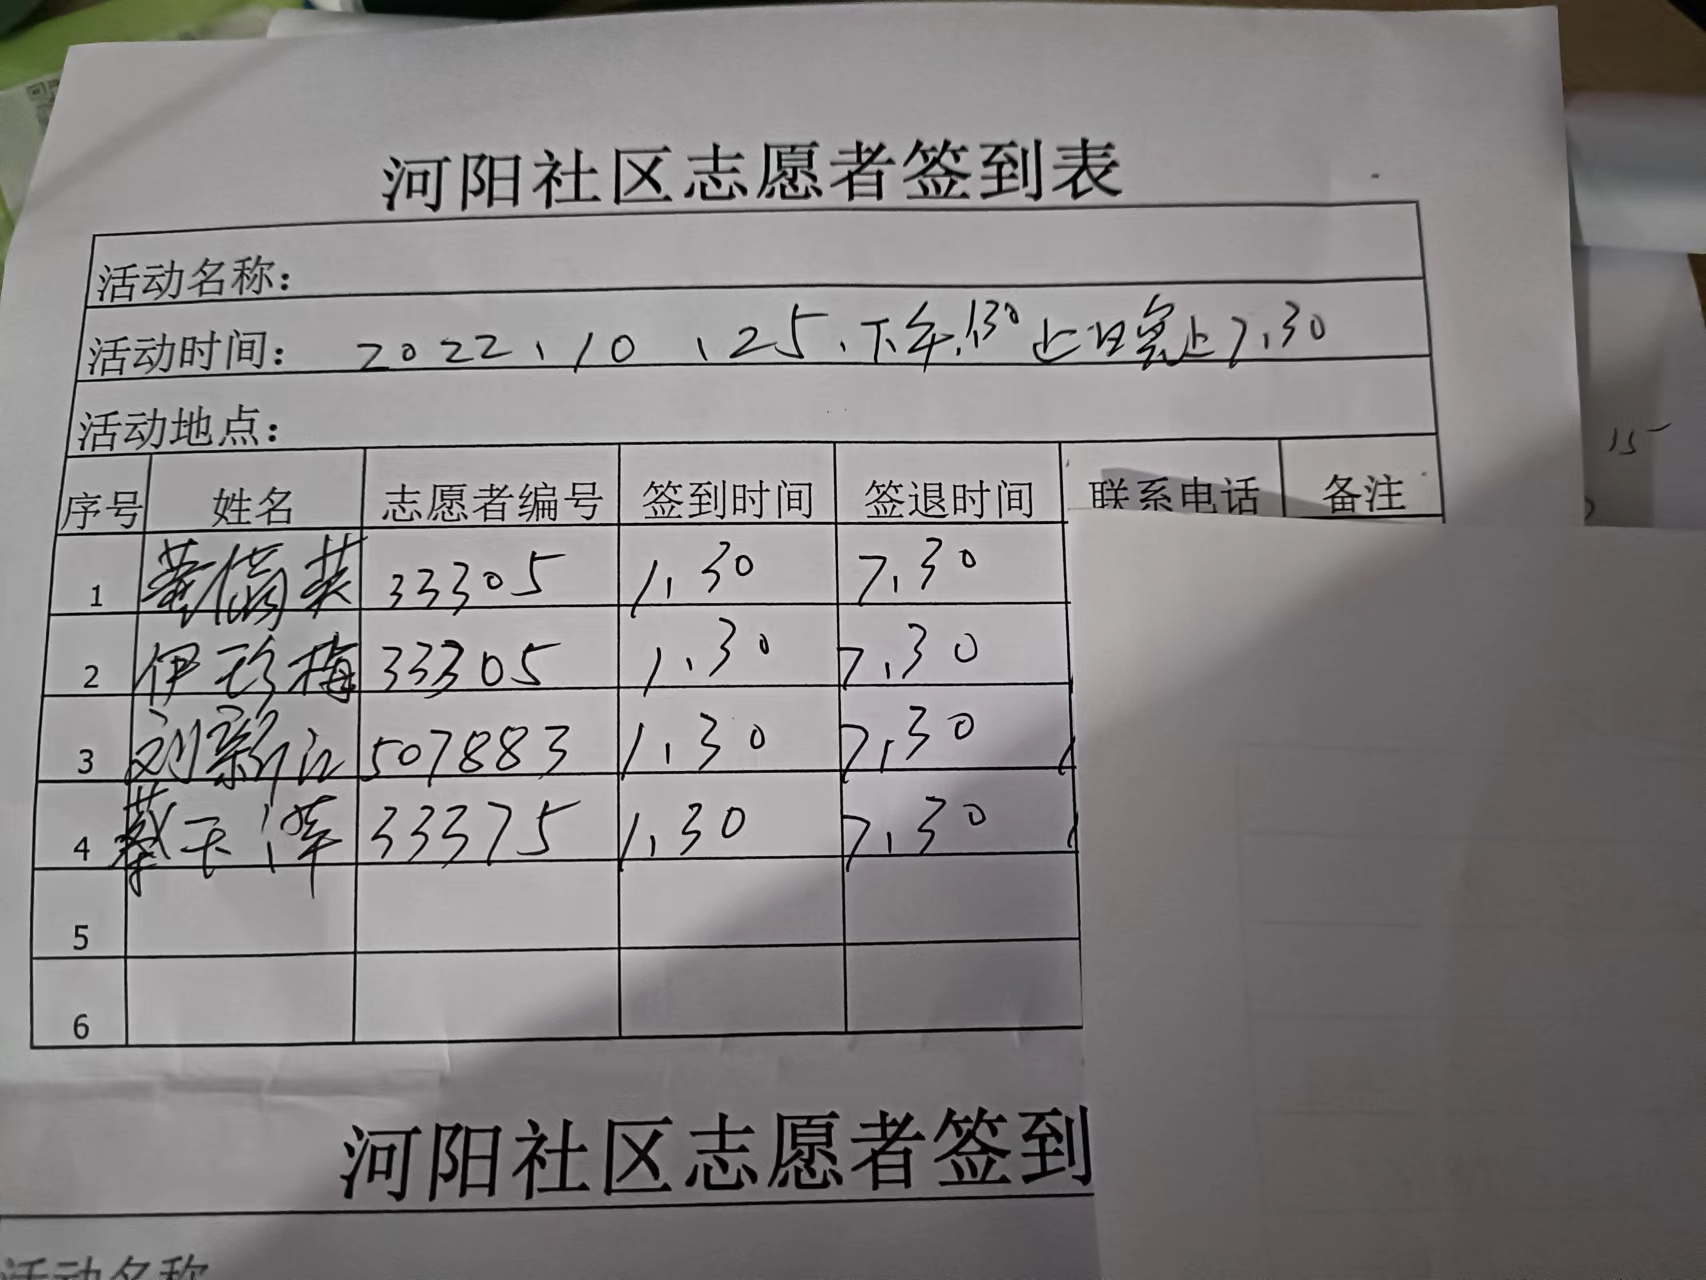 河阳社区志愿者签到表
活动名称：
活动时间： 2022、10、25、下午1.30 上日晚上7.30
活动地点：
序号 姓名 志愿者编号 签到时间 签退时间 联系电话 备注
1 33305 1.30 7.30
2 伊珍梅 33305 1.30 7.30
3 刘新江 507883 1.30 7.30
4 蔡玉萍 33375 1.30 7.30
5
6
河阳社区志愿者签到
活动名称
15